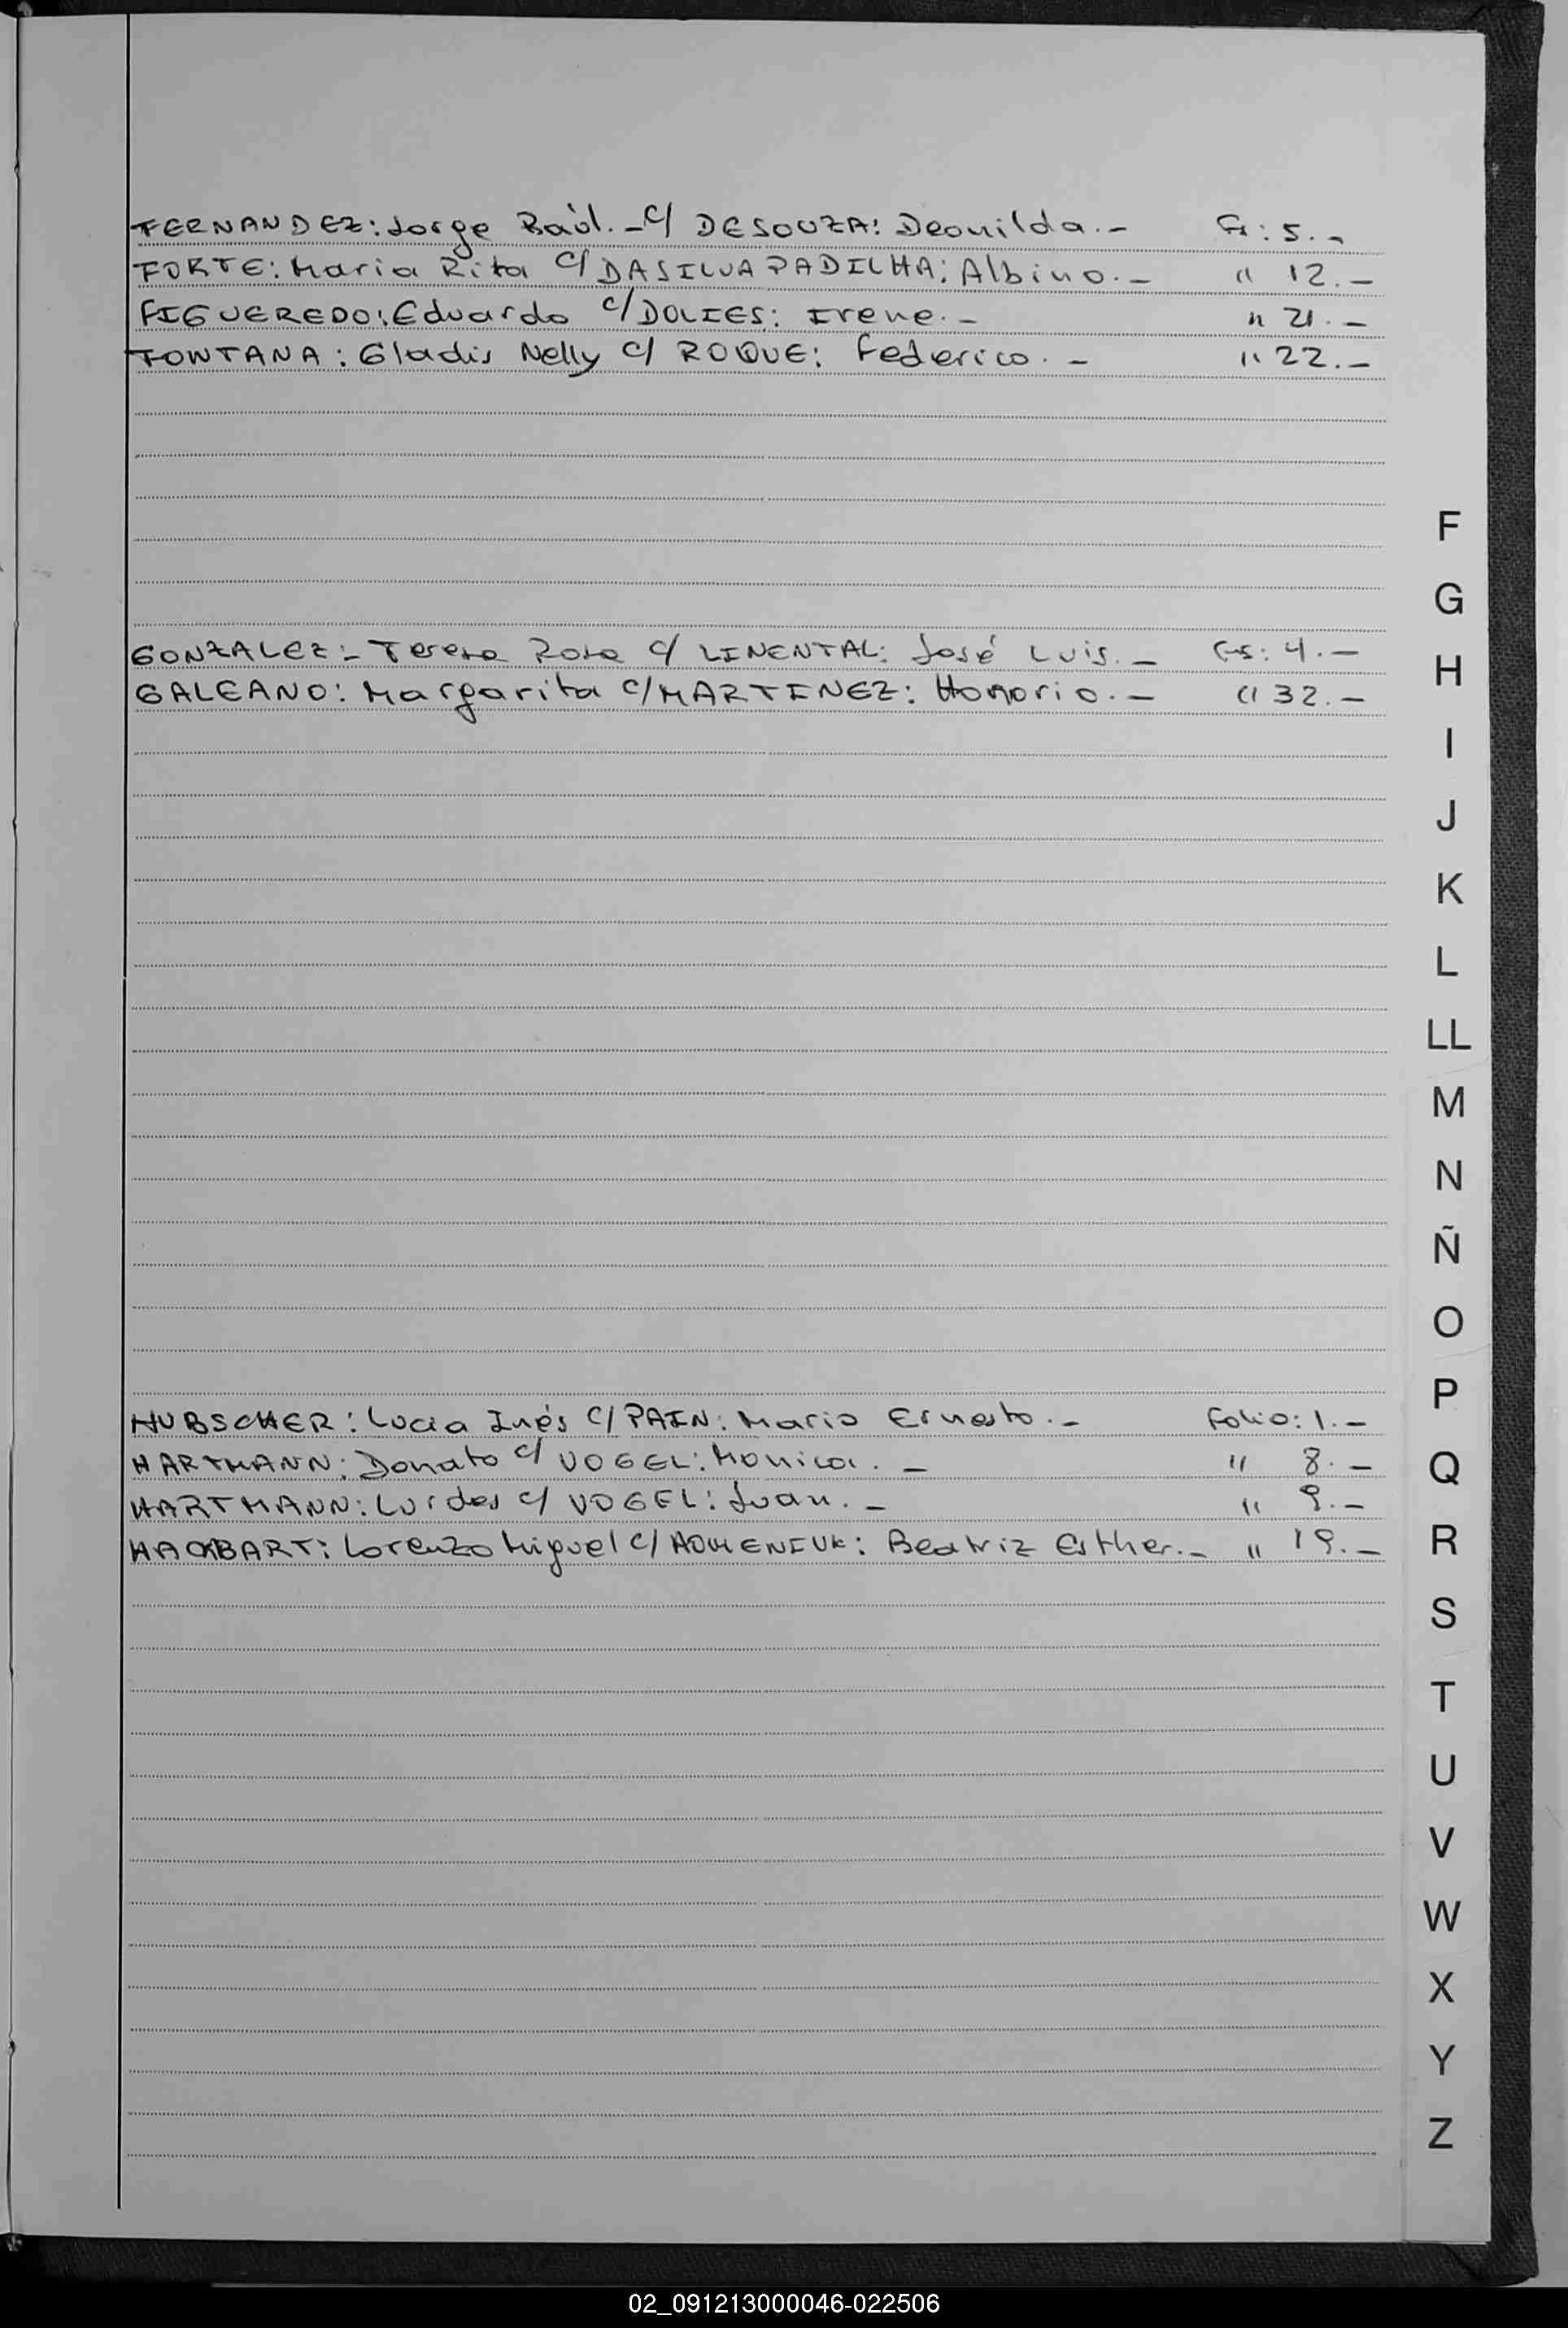 FERNANDEZ: Jorge Raúl.- c/ DESOUZA: Deonilda.- Fs: 5.-
FORTE: Maria Rita c/ DASILVA PADILHA: Albino.- " 12.-
FIGUEREDO: Eduardo c/ DOLIES: Irene.- " 21.-
FONTANA: Gladis Nelly c/ ROQUE: Federico.- " 22.-
F
G
GONZALEZ:- Teresa Rosa c/ LINENTAL: José Luis.- Fs: 4.-
H
GALEANO: Margarita c/ MARTINEZ: Honorio.- " 32.-
I
J
K
L
LL
M
N
Ñ
O
P
HUBSCHER: Lucia Inés c/ PAIN: Mario Ernesto.- Folio: 1.-
HARTMANN: Donato c/ VOGEL: Monica.- " 8.-
Q
HARTMANN: Lurdes c/ VOGEL: Juan.- " 9.-
HACKBART: Lorenzo Miguel c/ : Beatriz Esther.- " 19.-
R
S
T
U
V
W
X
Y
Z
02_091213000046-022506